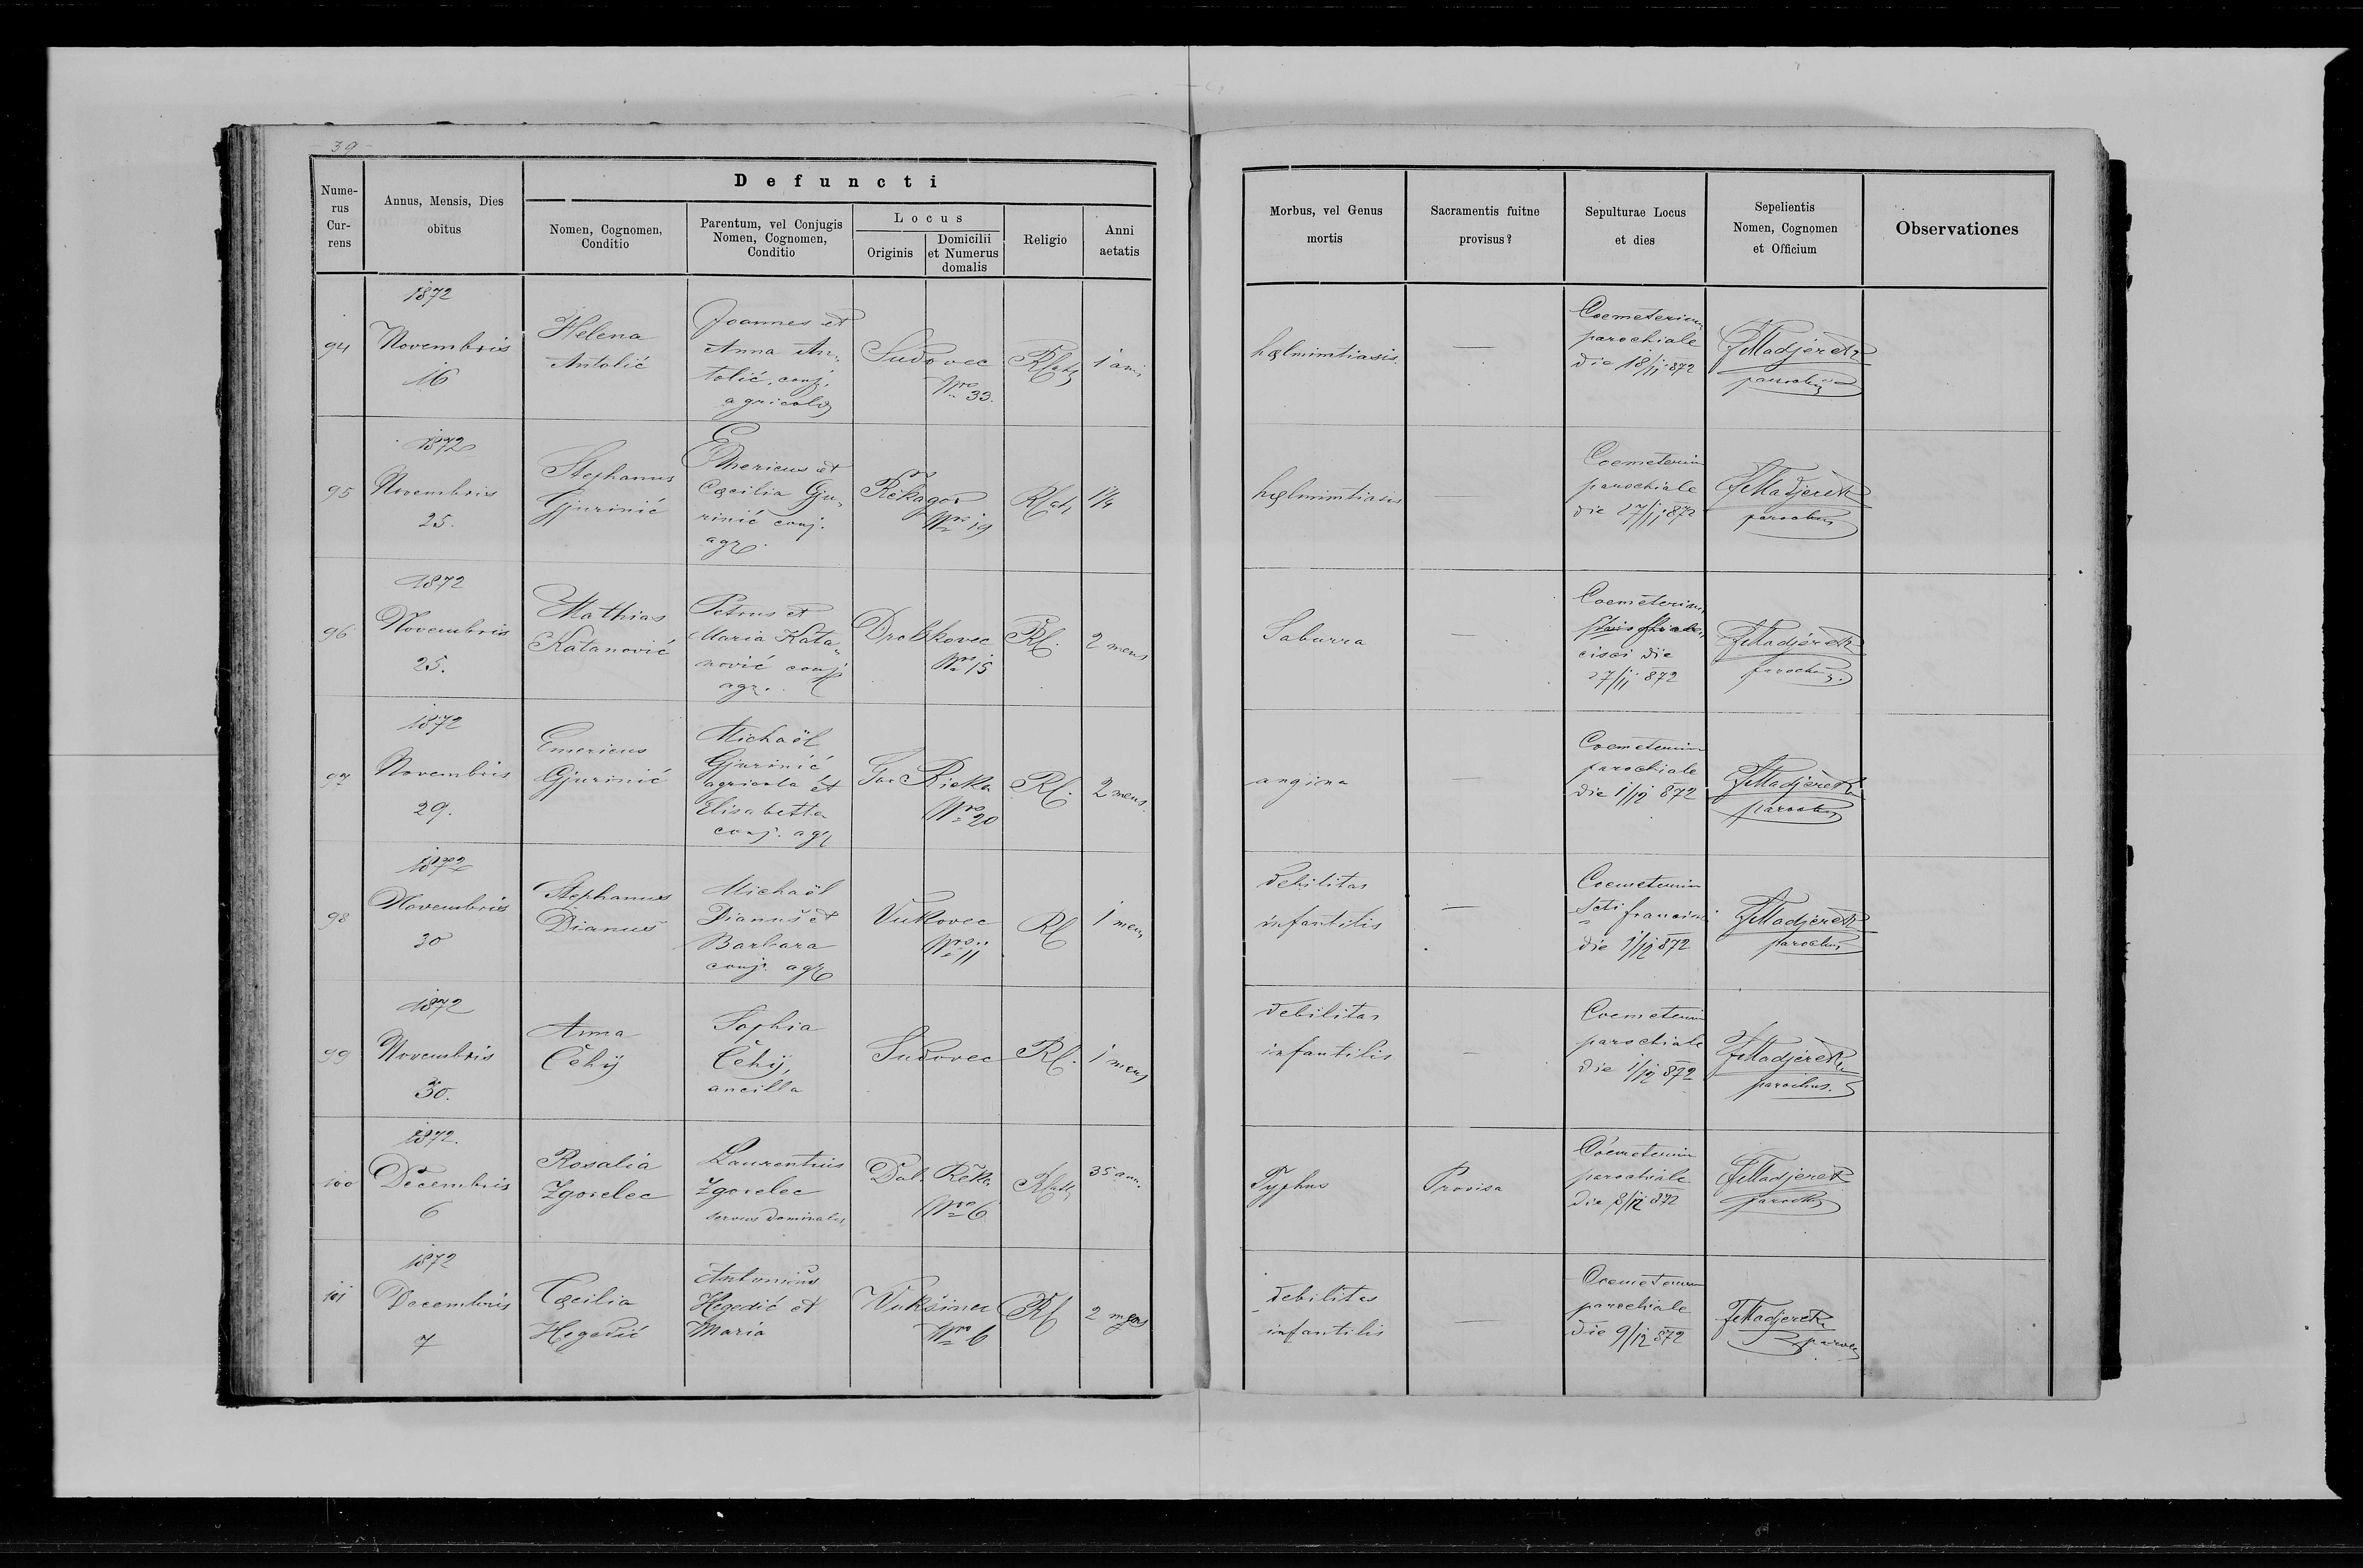 39
Defuncti
Nume-
rus
Cur-
rens
Annus, Mensis, Dies
obitus
Nomen, Cognomen,
Conditio
Parentum, vel Conjugis
Nomen, Cognomen,
Conditio
Locus
Originis
Domicilii
et Numerus
domalis
Religio
Anni
aetatis
Morbus, vel Genus
mortis
Sacramentis fuitne
provisus?
Sepulturae Locus
et dies
Sepelientis
Nomen, Cognomen
et Officium
Observationes
94
1872
Novembris
16
Helena
Antolić
Joannes et
Anna An„
tolić, conj.
agricolæ
Sudovec
Nro 33.
1
hælmimtiasis
—
Coemeterium
parochiale
die 18/11 872
FMadjerek
parochus
95
1872
Novembris
25.
Stephanus
Gjurinić
Emericus et
Cæcilia Gju„
rinić conj.
agr.
Rĕkagor
Nro 19
1/4
hælmimtiasis
Coemeterium
parochiale
die 27/11 872
FMadjerek
parochus
96
1872
Novembris
25.
Mathias
Katanović
Petrus et
Maria Kata„
nović conj
agr.
Drobkovec
Nro 15
Rl.
2 mens
Saburra
—
Coemeterium
cisci die
27/11 872
FMadjerek
parochus.
97
1872
Novembris
29.
Emericus
Gjurinić
Michaël
Gjurinić
agricola et
Elisabetta
conj. agr
Gor Rieka
Nro 20
Rl.
2 mens.
angina
—
Coemeterium
parochiale
die 1/12 872
FMadjerek
parochus
98
1872
Novembris
30
Stephanus
Dianuš
Michaël
Dianuš et
Barbara
conj. agr
Vukovec
Nro 11
Rl
1 mens
debilitas
infantilis
—
Coemeterium
Scti francisci
die 1/12 872
FMadjerek
parochus
99
1872
Novembris
30.
Anna
Čehij
Sophia
Čehij,
ancilla
Sudovec
Rl.
1 mens
debilitas
infantilis
—
Coemeterium
parochiale
die 1/12 872
FMadjerek
parochus.
100
1872.
Decembris
6
Rosalia
Zgorelec
Laurentius
Zgorelec
servus dominalis
Dol. Reka
Nro 6
35 ann.
Typhus
Provisa
Coemeterium
parochiale
die 8/12 872
FMadjerek
parochus
101
1872
Decembris
7
Cæcilia
Hegedić
Antonius
Hegedić et
Maria
Vukšinec
Nro 6
Rl
2 mens
debilitas
infantilis
—
Coemeterium
parochiale
die 9/12 872
FMadjerek